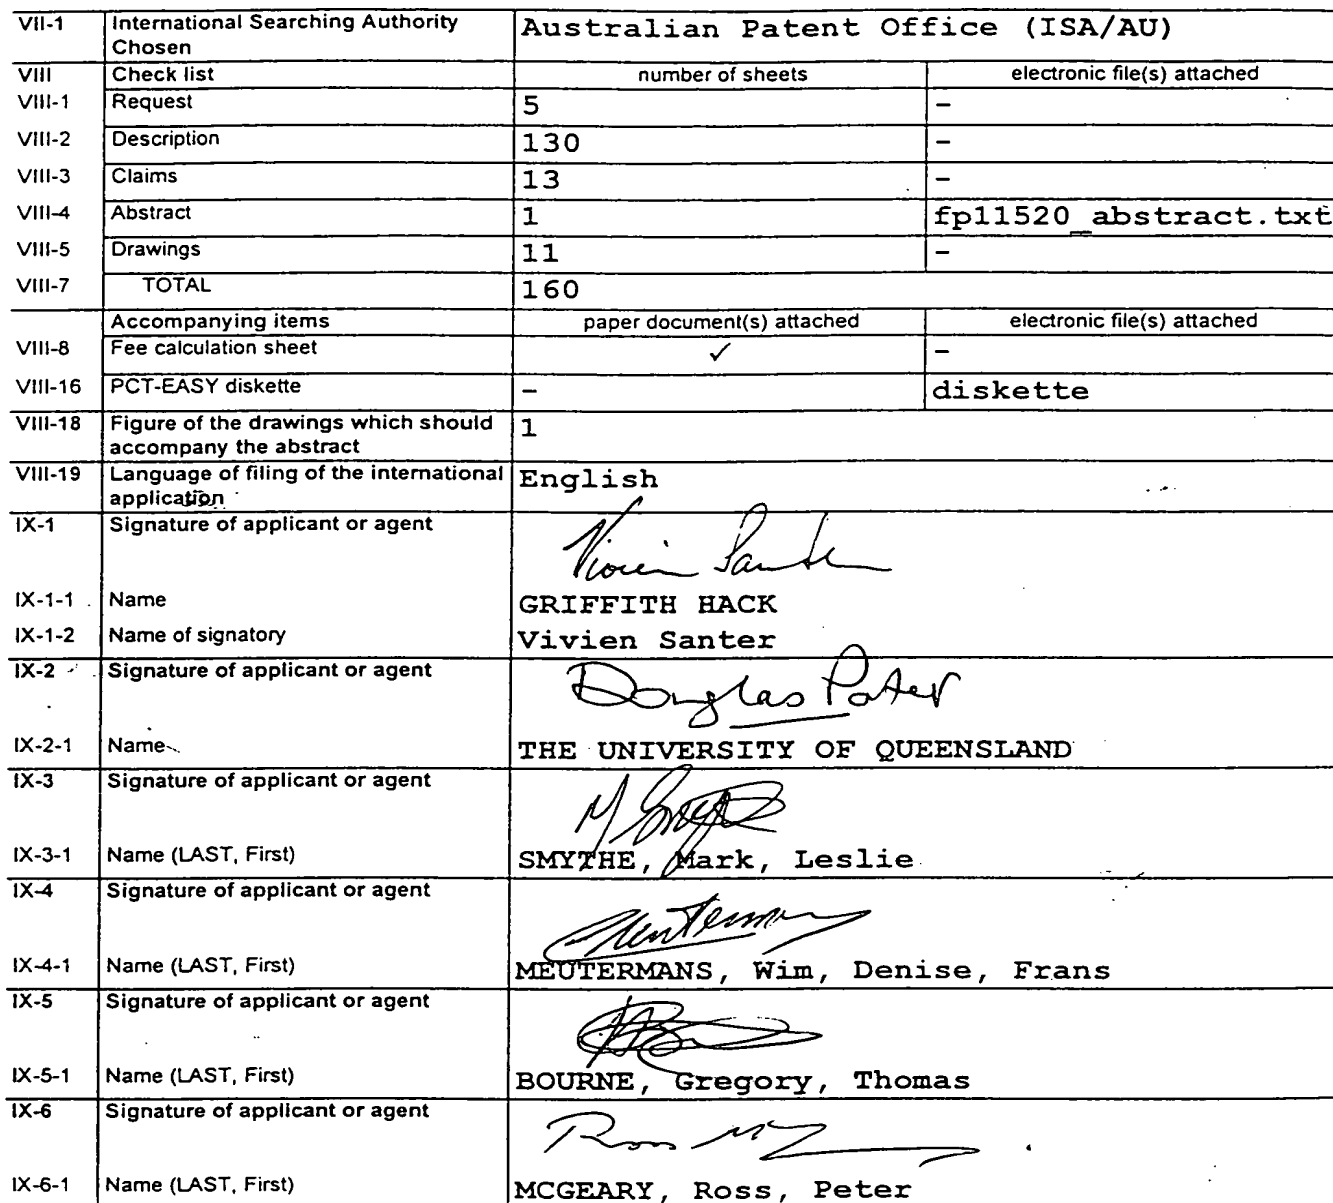 VII-1 International Searching Authority Chosen Australian Patent Office (ISA/AU)
VIII Check list number of sheets electronic file(s) attached
VIII-1 Request 5 -
VIII-2 Description 130 -
VIII-3 Claims 13 -
VIII-4 Abstract 1 fp11520_abstract.txt
VIII-5 Drawings 11 -
VIII-7 TOTAL 160
Accompanying items paper document(s) attached electronic file(s) attached
VIII-8 Fee calculation sheet ✓ -
VIII-16 PCT-EASY diskette - diskette
VIII-18 Figure of the drawings which should accompany the abstract 1
VIII-19 Language of filing of the international application English
IX-1 Signature of applicant or agent
IX-1-1 Name GRIFFITH HACK
IX-1-2 Name of signatory Vivien Santer
IX-2 Signature of applicant or agent Douglas Porter
IX-2-1 Name THE UNIVERSITY OF QUEENSLAND
IX-3 Signature of applicant or agent
IX-3-1 Name (LAST, First) SMYTHE, Mark, Leslie
IX-4 Signature of applicant or agent
IX-4-1 Name (LAST, First) MEUTERMANS, Wim, Denise, Frans
IX-5 Signature of applicant or agent
IX-5-1 Name (LAST, First) BOURNE, Gregory, Thomas
IX-6 Signature of applicant or agent
IX-6-1 Name (LAST, First) MCGEARY, Ross, Peter